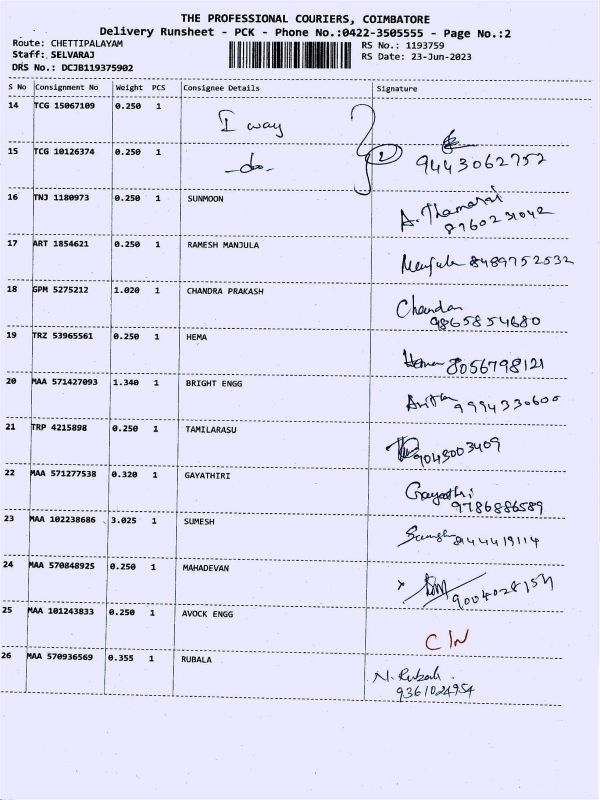 THE PROFESSIONAL COURIERS, COIMBATORE
Delivery Runsheet - PCK - Phone No.:0422-3505555 - Page No.:2
Route: CHETTIPALAYAM
RS No.: 1193759
Staff: SELVARAJ
RS Date: 23-Jun-2023
DRS No.: DCJB119375902
S No Consignment No Weight PCS Consignee Details Signature
14 TCG 15067109 0.250 1 I way
15 TCG 10126374 0.250 1 -do- 2 9443062752
16 TNJ 1180973 0.250 1 SUNMOON A. Thamarai
8760231042
17 ART 1854621 0.250 1 RAMESH MANJULA Manjula 8489752532
18 GPM 5275212 1.020 1 CHANDRA PRAKASH Chandan
9865854680
19 TRZ 53965561 0.250 1 HEMA Hema 8056798121
20 MAA 571427093 1.340 1 BRIGHT ENGG 9994330600
21 TRP 4215898 0.250 1 TAMILARASU 9043003409
22 MAA 571277538 0.320 1 GAYATHIRI Gayathri
9786886589
23 MAA 102238686 3.025 1 SUMESH
24 MAA 570848925 0.250 1 MAHADEVAN x 9004028154
25 MAA 101243833 0.250 1 AVOCK ENGG C/N
26 MAA 570936569 0.355 1 RUBALA N. Rubala
9361024954